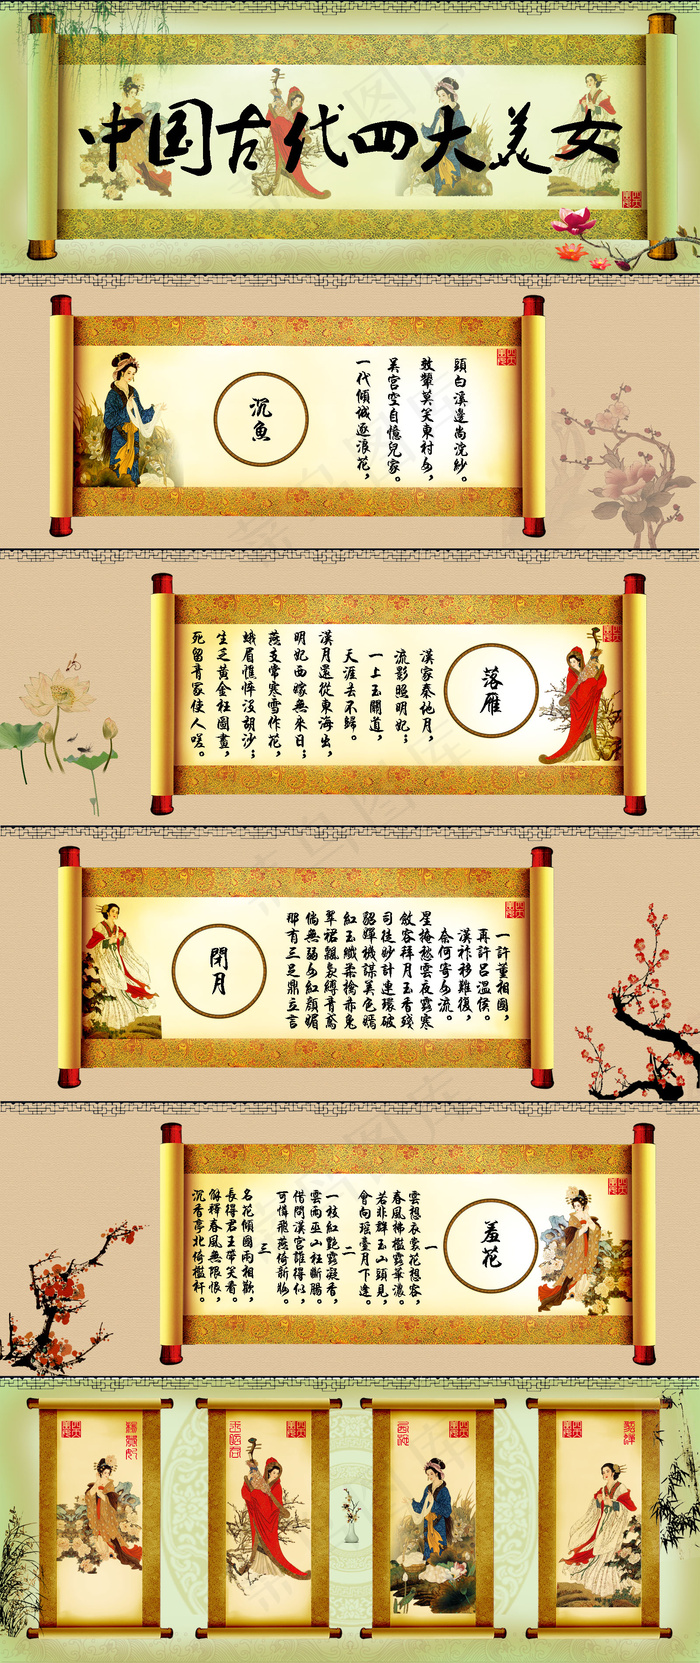 中国古代四大美女
沉魚
一代傾城逐浪花，
吴宮空自憶兒家。
效颦莫笑東村女，
頭白溪邊尚浣紗。
落雁
漢家秦地月，
流影照明妃；
一上玉關道，
天涯去不歸。
漢月還從東海出，
明妃西嫁無來日；
燕支常寒雪作花，
蛾眉憔悴沒胡沙；
生乏黄金枉圖畫，
死留青冢使人嗟。
閉月
一許董相國，
再許吕溫侯。
漢祚移難復，
奈何客女流。
星掩愁雲夜露寒
斂容拜月玉香殘
司徒妙計連環破
貂嬋機謀美色嫣
紅玉纖柔擒赤兔
翠裙飄裊縛青鸞
倘無弱女紅顏媚
那有三足鼎立言
羞花
一
雲想衣裳花想容，
春風拂檻露華濃。
若非群玉山頭見，
會向瑶臺月下逢。
二
一枝紅艷露凝香，
雲雨巫山枉斷腸。
借問漢宮誰得似，
可憐飛燕倚新妝。
三
名花傾國兩相歡，
長得君王帶笑看。
解釋春風無限恨，
沉香亭北倚檻杆。
西施